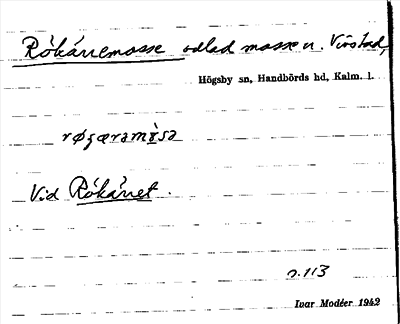 Rókánemosse odlad mosse n. Virstad,
Högsby sn, Handbörds hd, Kalm. l.
Vid Rókánet.
n.113
Ivar Modéer 1942